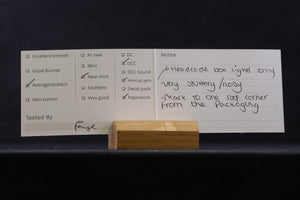 Excellent/smooth
Good Runner
Average/stutters
Non-runner
Tested By
As new
Mint
Near mint
Excellent
Very good
DC
DCC
DCC Sound
Working Lights
Detail pack
Paperwork
Notes
Headcode box light only
- very stuttery / noisy
- Mark to one roof corner
from the Packaging